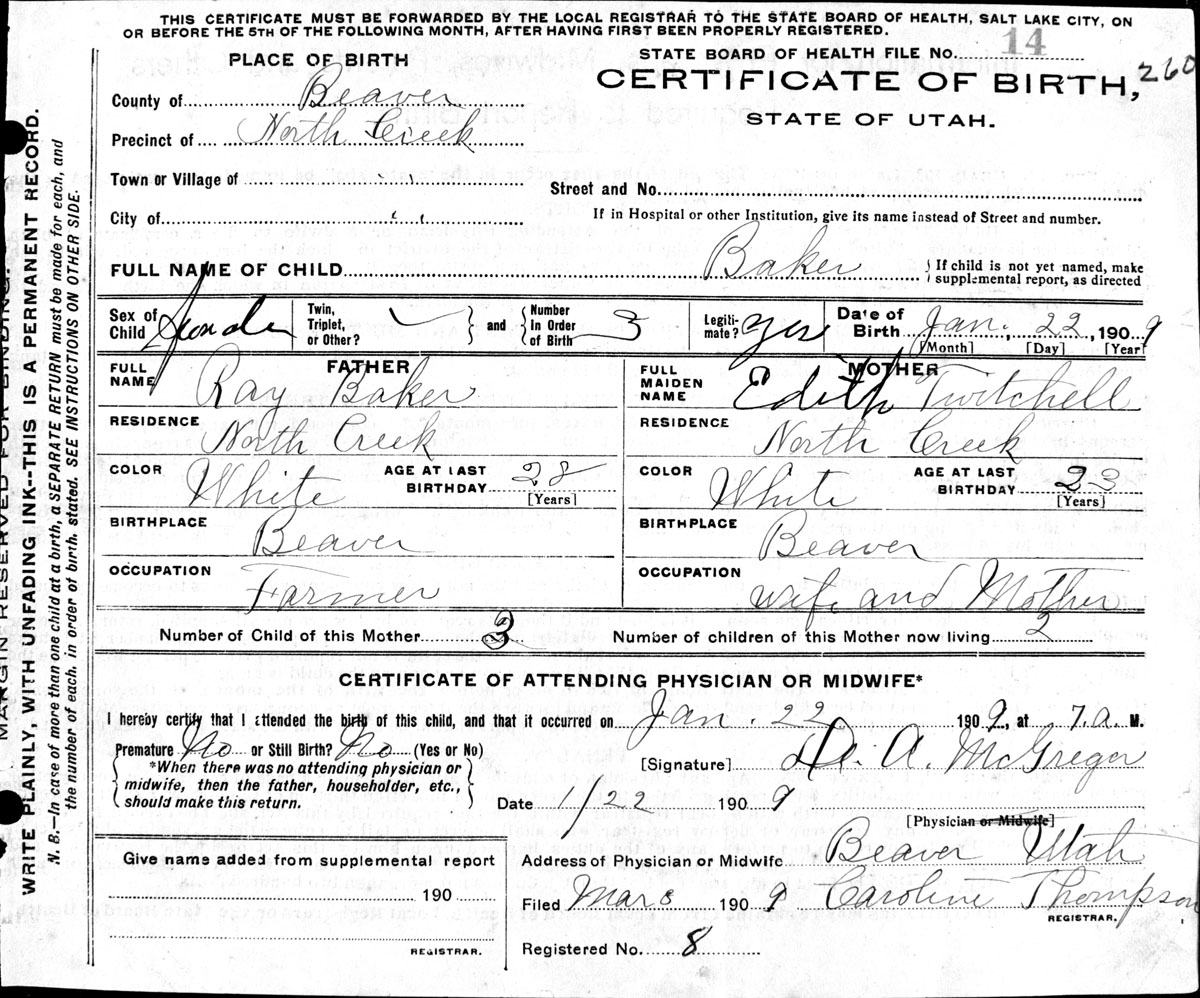 THIS CERTIFICATE MUST BE FORWARDED BY THE LOCAL REGISTRAR TO THE STATE BOARD OF HEALTH, SALT LAKE CITY, ON
OR BEFORE THE 5TH OF THE FOLLOWING MONTH, AFTER HAVING FIRST BEEN PROPERLY REGISTERED.
PLACE OF BIRTH
STATE BOARD OF HEALTH FILE NO. 14
County of Beaver
CERTIFICATE OF BIRTH, 260
Precinct of North Creek
STATE OF UTAH.
Town or Village of
Street and No.
City of
If in Hospital or other Institution, give its name instead of Street and number.
FULL NAME OF CHILD Baker
If child is not yet named, make
supplemental report, as directed
Sex of Child
Twin, Triplet, or Other?
and
Number in Order of Birth 3
Legiti-mate? yes
Date of Birth Jan. 22, 1909
[Month] [Day] [Year]
FATHER
FULL NAME Ray Baker
RESIDENCE North Creek
COLOR White
AGE AT LAST BIRTHDAY 28
[Years]
BIRTHPLACE Beaver
OCCUPATION Farmer
MOTHER
FULL MAIDEN NAME Edith Twitchell
RESIDENCE North Creek
COLOR White
AGE AT LAST BIRTHDAY 23
[Years]
BIRTHPLACE Beaver
OCCUPATION wife and Mother
Number of Child of this Mother 3
Number of children of this Mother now living 2
CERTIFICATE OF ATTENDING PHYSICIAN OR MIDWIFE*
I hereby certify that I attended the birth of this child, and that it occurred on Jan. 22 1909, at 7. a M.
Premature No or Still Birth? No (Yes or No)
*When there was no attending physician or
midwife, then the father, householder, etc.,
should make this return.
[Signature] A. McGregor
Date 1/22 1909
[Physician or Midwife]
Give name added from supplemental report
190
REGISTRAR.
Address of Physician or Midwife Beaver Utah
Filed Mar 3 1909 Caroline Thompson
REGISTRAR.
Registered No. 8
MARGIN RESERVED FOR BINDING.
WRITE PLAINLY, WITH UNFADING INK--THIS IS A PERMANENT RECORD.
N. B.—In case of more than one child at a birth, a SEPARATE RETURN must be made for each, and
the number of each, in order of birth, stated. SEE INSTRUCTIONS ON OTHER SIDE.